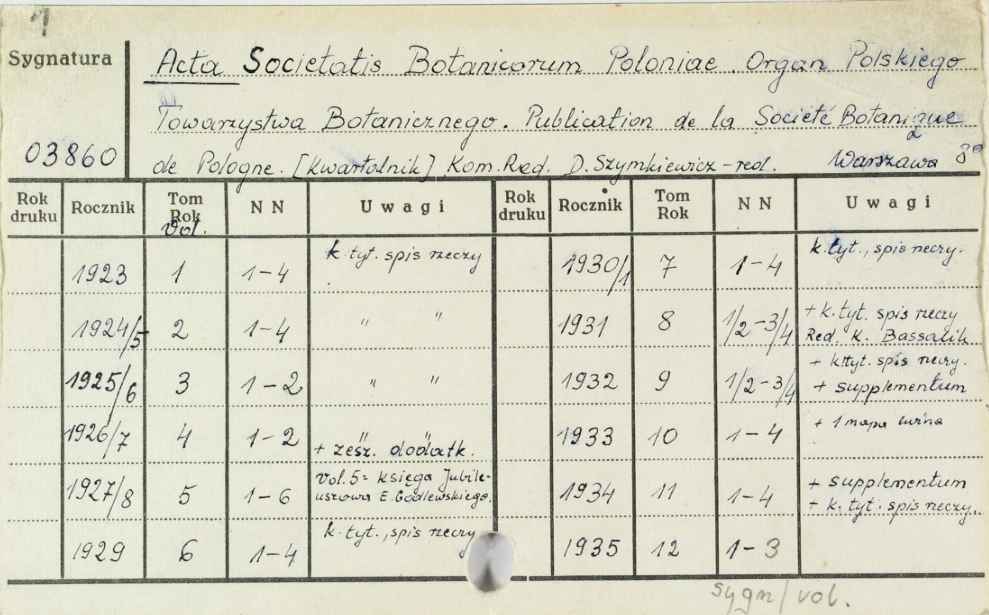 1
Sygnatura
03860
Acta Societatis Botanicorum Poloniae. Organ Polskiego
Towarzystwa Botanicznego. Publication de la Société Botanique
de Pologne. [Kwartalnik] Kom. Red. D. Szymkiewicz - red. Warszawa 8°
Rok druku Rocznik Tom Rok vol. NN Uwagi Rok druku Rocznik Tom Rok NN Uwagi
1923 1 1-4 k. tyt. spis rzeczy
1924/5 2 1-4 " "
1925/6 3 1-2 " "
1926/7 4 1-2 " "
+ zesz. dodatk.
1927/8 5 1-6 Vol. 5 = Księga Jubile-
uszowa E. Godlewskiego.
1929 6 1-4 k. tyt., spis rzeczy
1930/1 7 1-4 k. tyt., spis rzeczy.
1931 8 1/2-3/4 + k. tyt. spis rzeczy
Red. K. Bassalik
1932 9 1/2-3/4 + k. tyt. spis rzeczy.
+ supplementum
1933 10 1-4 + 1 mapa
1934 11 1-4 + supplementum
+ k. tyt. spis rzeczy.
1935 12 1-3
sygn/vol.